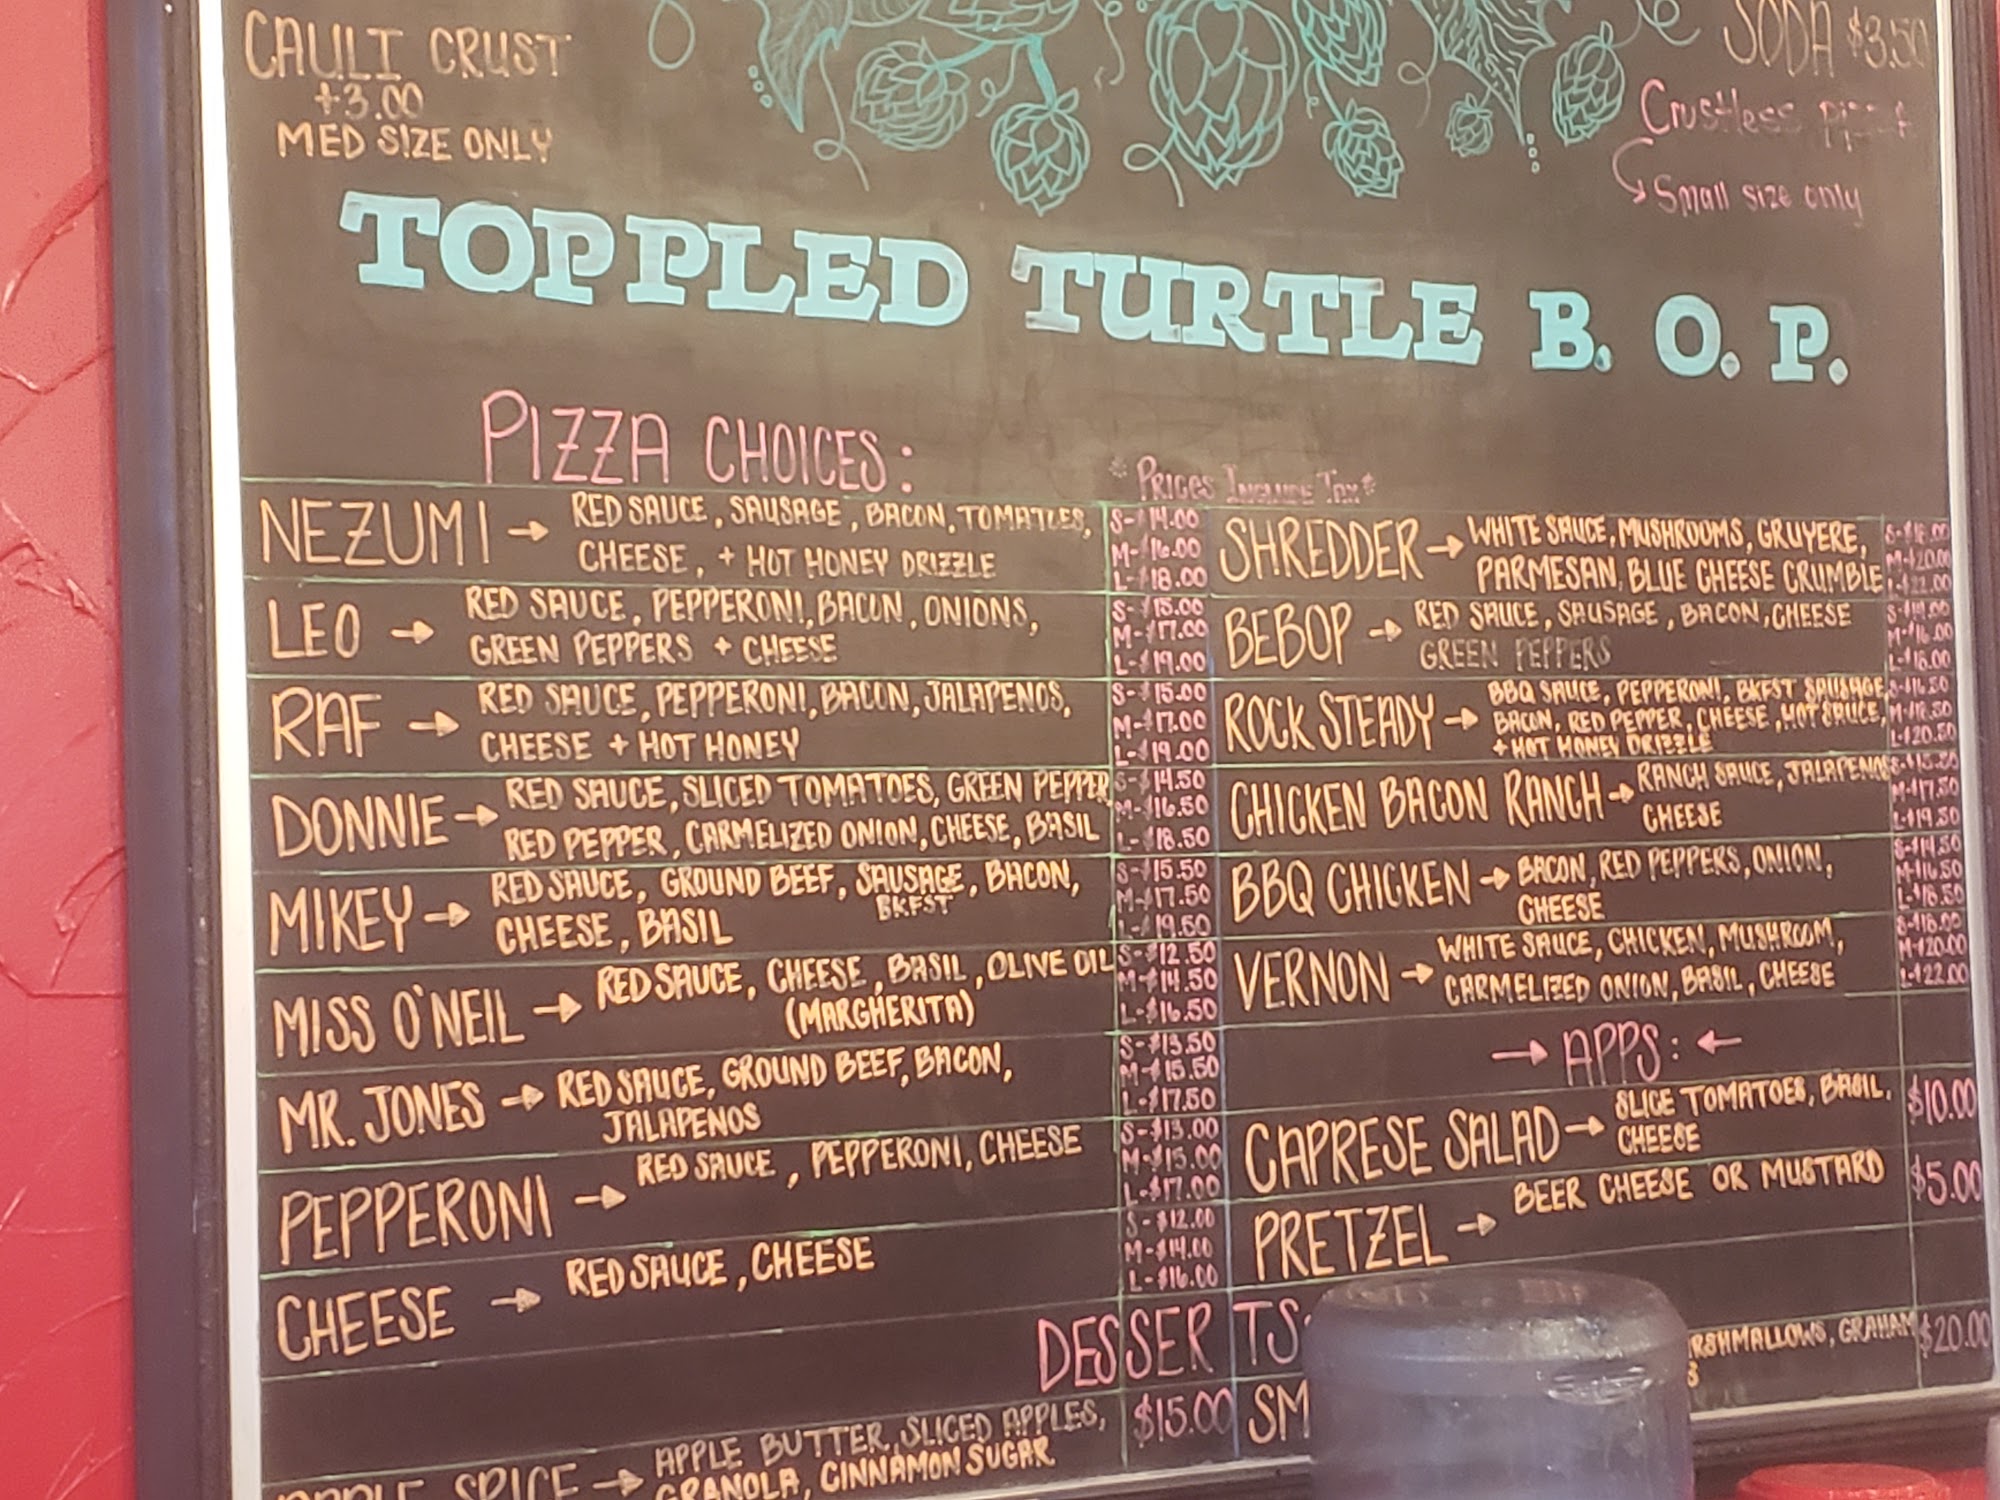 CAULI CRUST
+3.00
MED SIZE ONLY
SODA $3.50
Crustless Pizza
Small size only
TOPPLED TURTLE B.O.P.
PIZZA CHOICES:
* PRICES INCLUDE TAX *
NEZUMI → RED SAUCE, SAUSAGE, BACON, TOMATOES,
CHEESE, + HOT HONEY DRIZZLE
S-$14.00
M-$16.00
L-$18.00
LEO → RED SAUCE, PEPPERONI, BACON, ONIONS,
GREEN PEPPERS + CHEESE
S-$15.00
M-$17.00
L-$19.00
RAF → RED SAUCE, PEPPERONI, BACON, JALAPENOS,
CHEESE + HOT HONEY
S-$15.00
M-$17.00
L-$19.00
DONNIE → RED SAUCE, SLICED TOMATOES, GREEN PEPPER
RED PEPPER, CARMELIZED ONION, CHEESE, BASIL
S-$14.50
M-$16.50
L-$18.50
MIKEY → RED SAUCE, GROUND BEEF, SAUSAGE, BACON,
BKFST
CHEESE, BASIL
S-$15.50
M-$17.50
L-$19.50
MISS O'NEIL → RED SAUCE, CHEESE, BASIL, OLIVE OIL
(MARGHERITA)
S-$12.50
M-$14.50
L-$16.50
MR. JONES → RED SAUCE, GROUND BEEF, BACON,
JALAPENOS
S-$13.50
M-$15.50
L-$17.50
PEPPERONI → RED SAUCE, PEPPERONI, CHEESE
S-$13.00
M-$15.00
L-$17.00
CHEESE → RED SAUCE, CHEESE
S-$12.00
M-$14.00
L-$16.00
SHREDDER → WHITE SAUCE, MUSHROOMS, GRUYERE,
PARMESAN, BLUE CHEESE CRUMBLE
S-$18.00
M-$20.00
L-$22.00
BEBOP → RED SAUCE, SAUSAGE, BACON, CHEESE
GREEN PEPPERS
S-$14.00
M-$16.00
L-$18.00
ROCK STEADY → BBQ SAUCE, PEPPERONI, BKFST SAUSAGE,
BACON, RED PEPPER, CHEESE, HOT SAUCE,
+ HOT HONEY DRIZZLE
S-$16.50
M-$18.50
L-$20.50
CHICKEN BACON RANCH → RANCH SAUCE, JALAPENOS
CHEESE
S-$15.50
M-$17.50
L-$19.50
BBQ CHICKEN → BACON, RED PEPPERS, ONION,
CHEESE
S-$14.50
M-$16.50
L-$18.50
VERNON → WHITE SAUCE, CHICKEN, MUSHROOM,
CARMELIZED ONION, BASIL, CHEESE
S-$18.00
M-$20.00
L-$22.00
→ APPS: ←
CAPRESE SALAD → SLICE TOMATOES, BASIL,
CHEESE
$10.00
PRETZEL → BEER CHEESE OR MUSTARD
$5.00
DESSERTS
APPLE SPICE → APPLE BUTTER, SLICED APPLES,
GRANOLA, CINNAMON SUGAR
$15.00
SM
RSHMALLOWS, GRAHAM
S
$20.00